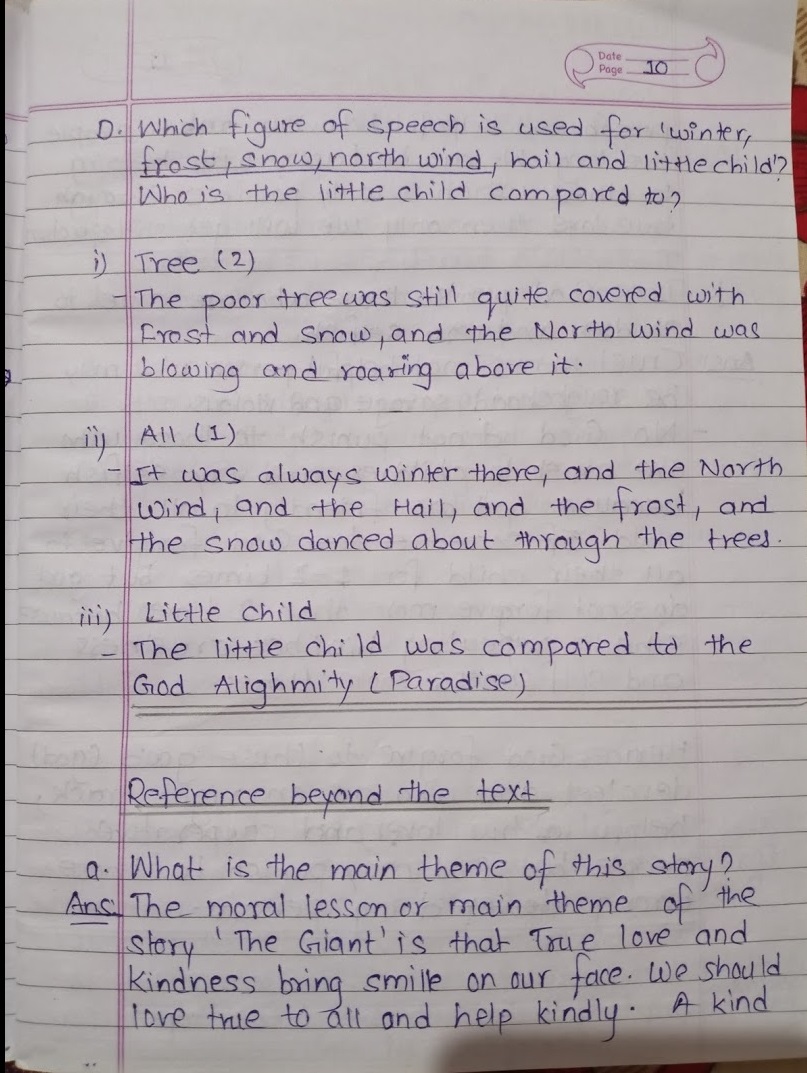 Date
Page 10
D. Which figure of speech is used for 'winter,
frost, snow, north wind, hail and little child'?
Who is the little child compared to?
i) Tree (2)
- The poor tree was still quite covered with
Frost and Snow, and the North wind was
blowing and roaring above it.
ii) All (1)
- It was always winter there, and the North
Wind, and the Hail, and the frost, and
the snow danced about through the trees.
iii) Little child
- The little child was compared to the
God Alighmity (Paradise)
Reference beyond the text
a. What is the main theme of this story?
Ans. The moral lesson or main theme of the
story 'The Giant' is that True love and
kindness bring smile on our face. We should
love true to all and help kindly. A kind